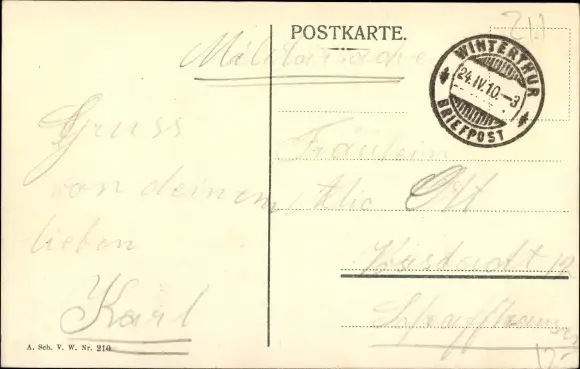 POSTKARTE.
Militärsache
WINTERTHUR
24.IV.10.-3
BRIEFPOST
Gruss
von deinem
lieben
Karl
Fräulein
Ott
A. Sch. V. W. Nr. 210